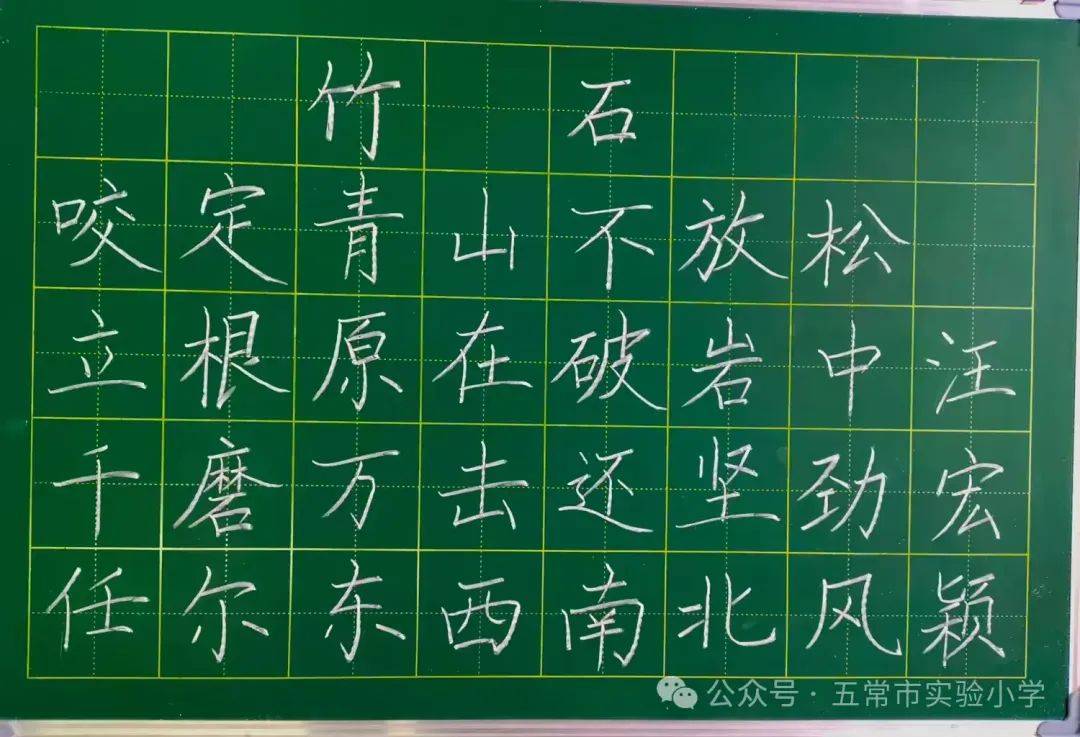 竹石
咬定青山不放松
立根原在破岩中 汪
千磨万击还坚劲 宏
任尔东西南北风 颖
公众号·五常市实验小学